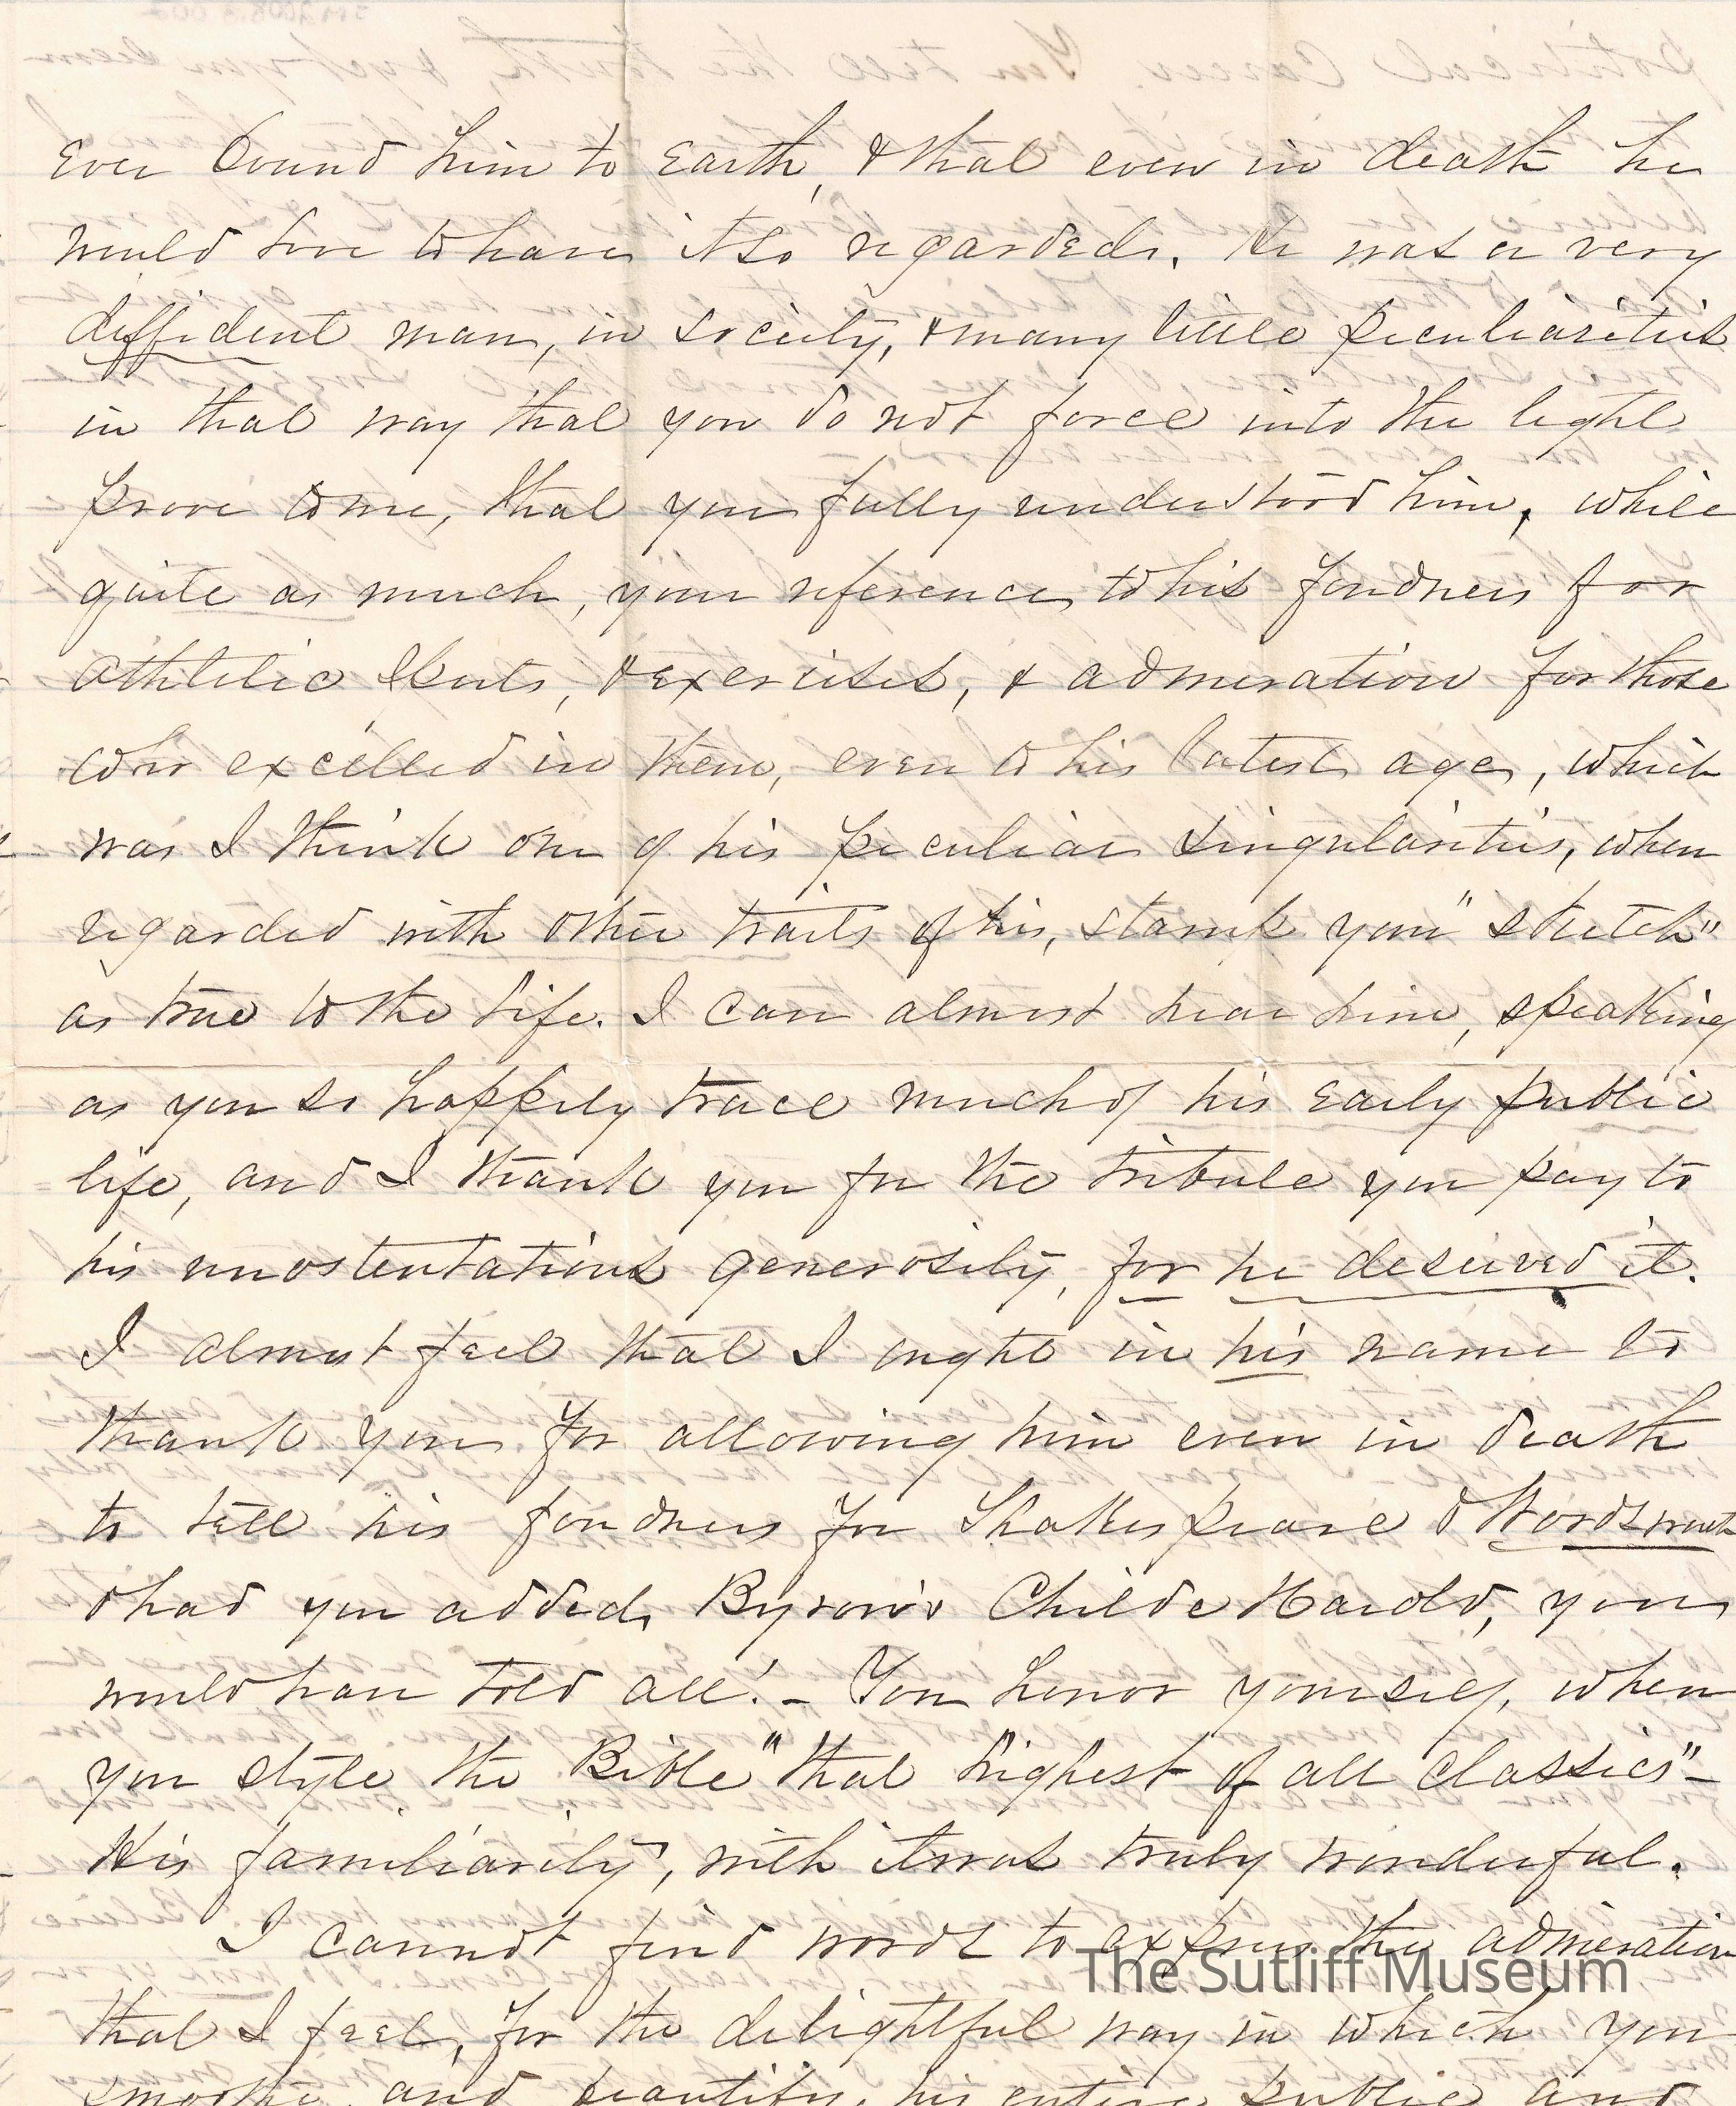 ever bound him to earth, & that even in death he
would love to have it so regarded. He was a very
diffident man, in society, & many little peculiarities
in that way that you do not force into the light
prove to me, that you fully understood him, while
quite as much, your reference to his fondness for
athletic sports, & exercises, & admiration for those
who excelled in them, even to his latest age, which
was I think one of his peculiar singularities, when
regarded with other traits of his, stamp your "sketch"
as true to the life. I can almost hear him, speaking
as you so happily trace much of his early public
life, and I thank you for the tribute you pay to
his unostentatious generosity, for he deserved it.
I almost feel that I ought in his name to
thank you for allowing him even in death
to tell his fondness for Shakespeare & Wordsworth
& had you added, Byron's Childe Harold, you
would have told all! - You honor yourself, when
you style the Bible "that highest of all classics" -
His familiarity, with it was truly wonderful.
I cannot find words to express the admiration
The Sutliff Museum
that I feel, for the delightful way in which you
smoothe, and beautify, his entire public and